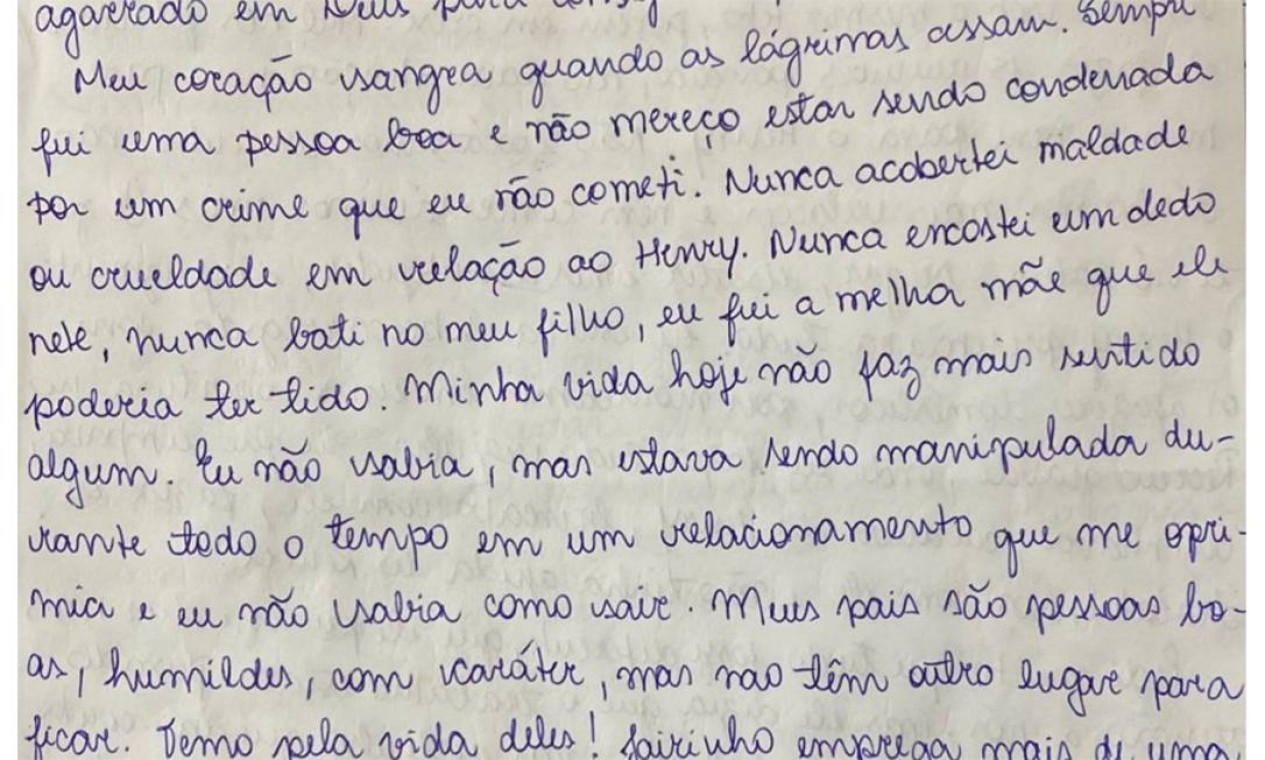 agarrado em Deus para
Meu coração sangra quando as lágrimas assam. Sempre
fui uma pessoa boa e não mereço estar sendo condenada
por um crime que eu não cometi. Nunca acobertei maldade
ou crueldade em relação ao Henry. Nunca encostei um dedo
nele, nunca bati no meu filho, eu fui a melha mãe que ele
poderia ter tido. Minha vida hoje não faz mais sentido
algum. Eu não sabia, mas estava sendo manipulada du-
rante todo o tempo em um relacionamento que me opri-
mia e eu não sabia como sair. Meus pais são pessoas bo-
as, humildes, com caráter, mas nao têm outro lugar para
ficar. Temo pela vida deles! Jairinho emprega mais de uma